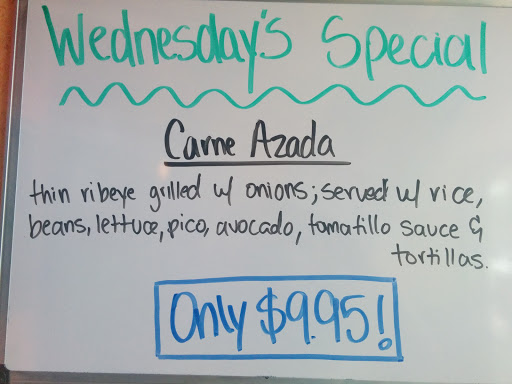 Wednesday's Special
Carne Azada
thin ribeye grilled w/ onions; served w/ rice,
beans, lettuce, pico, avocado, tomatillo sauce &
tortillas.
Only $9.95!